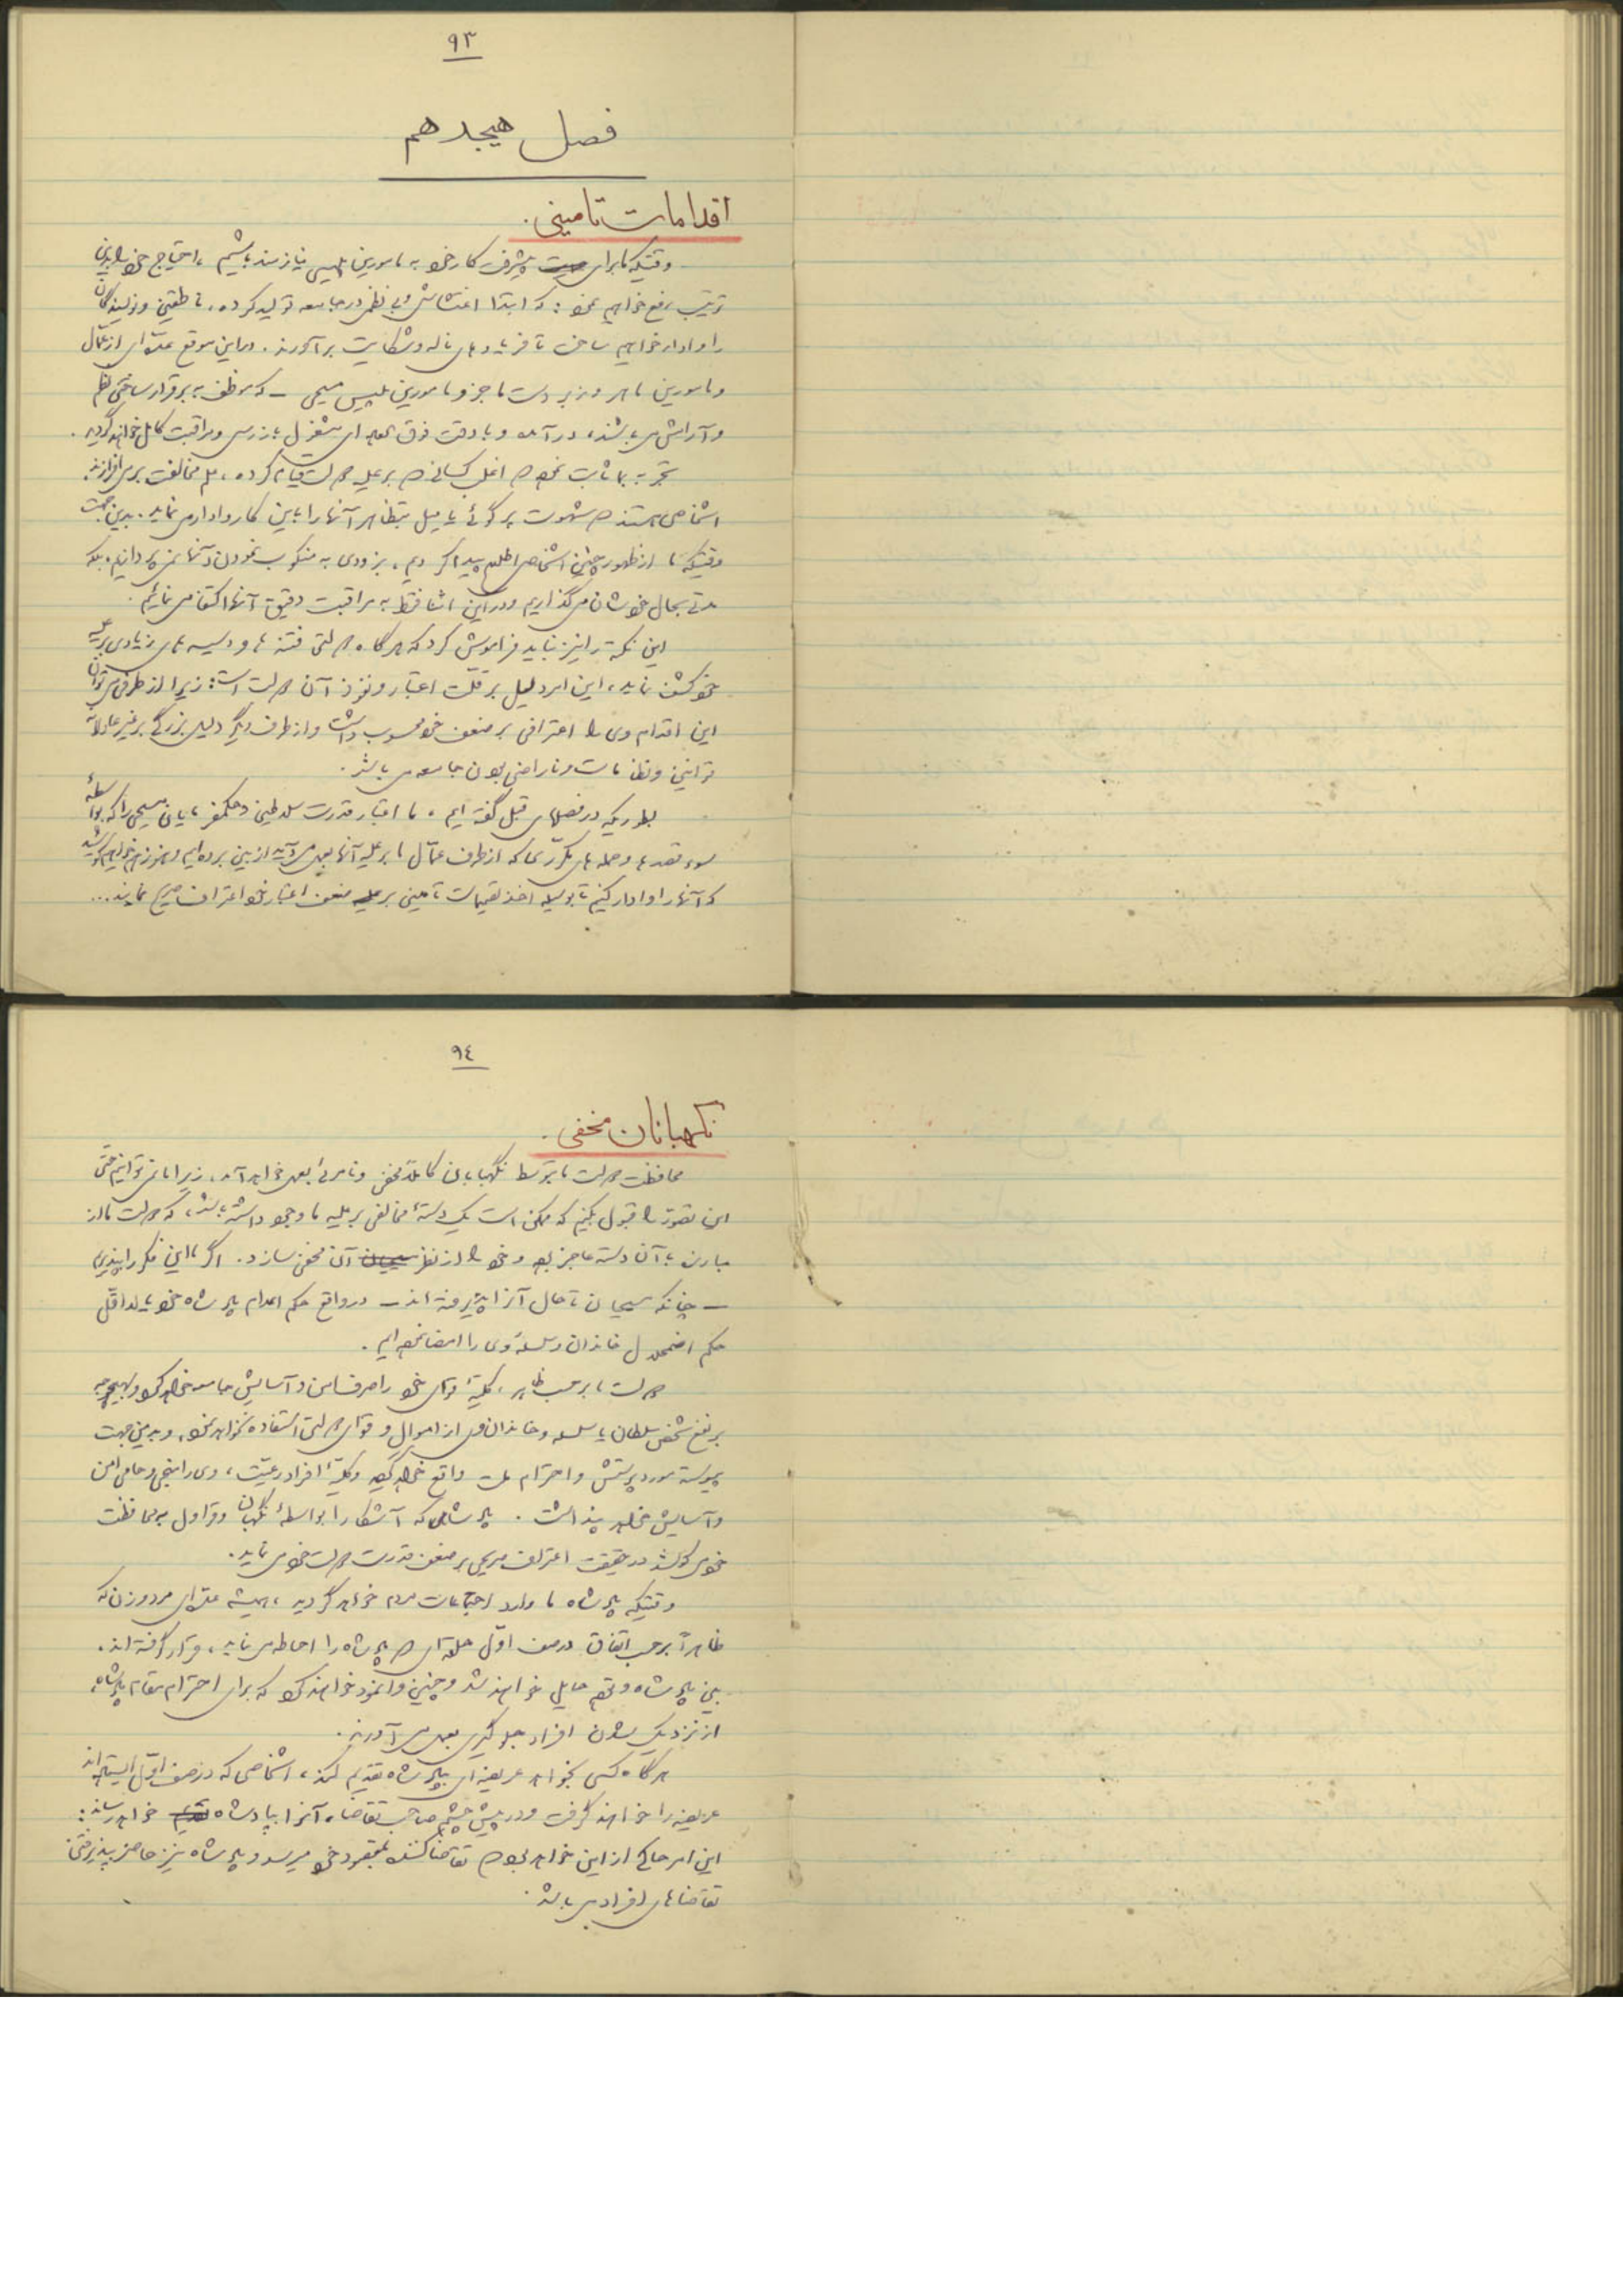 ۹۳
فصل هیجدهم
اقدامات تامینی.
وقتیکه ما برای پیشرفت کار خود به مامورین پلیس نیازمند باشیم، احتیاج خود را بدین
ترتیب رفع خواهیم نمود: که ابتدا اغتشاش و بی نظمی در جامعه تولید کرده، ناطقین و نویسندگان
را وادار خواهیم ساخت تا فریادهای ناله و شکایت برآورند. در این موقع عده‌ای از عمّال
و مامورین ماهر و زبردست ما جزو مامورین پلیس مسیحی - که موظف به برقرار ساختن نظم
و آرامش می‌باشند، درآمده و با دقت فوق العاده ای مشغول بازرسی و مراقبت کامل خواهند گردید.
تجربه بما ثابت نموده اغلب کسانی که بر علیه دولت قیام کرده، علم مخالفت بر می‌افرازند،
اشخاصی هستند که شهوت پرگوئی یا میل بتظاهر آنها را باین کار وادار می‌نماید. بدین جهت
وقتیکه ما از ظهور چنین اشخاصی اطلاع پیدا کردیم، بزودی به منکوب نمودن آنها نمی‌پردازیم، بلکه
مدتی بحال خودشان می‌گذاریم و در این اثنا فقط به مراقبت دقیق آنها اکتفا می‌نمائیم.
این نکته را نیز نباید فراموش کرد که هرگاه دولتی فتنه ها و دسیسه های زیادی بر علیه
خود کشف نماید، این امر دلیل بر قلّت اعتبار و نفوذ آن دولت است؛ زیرا از طرفی میتوان
این اقدام وی را اعترافی بر ضعف خود محسوب داشت و از طرف دیگر دلیل بزرگی بر غیر عادلانه
قوانین و نظامات و ناراضی بودن جامعه می‌باشد.
بطوریکه در فصلهای قبل گفته ایم، ما اعتبار قدرت سلاطین و حکمفرمایان مسیحی را که بواسطهٔ
سوء قصدها و حمله های مکرّری که از طرف عمّال ما بر علیه آنها بعمل می‌آید از بین برده‌ایم و هنوز هم خواهیم کوشید
که آنها را وادار کنیم تا بوسیله اخذ تصمیمات تامینی بر ضعف اعتبار خود اعتراف صریح نمایند...
۹٤
نگهبانان مخفی.
محافظت دولت ما بتوسط نگهبانان کاملاً مخفی و نامرئی بعمل خواهد آمد، زیرا ما نمی‌توانیم حتی
این تصوّر را قبول بکنیم که ممکن است یک دستهٔ مخالفی بر علیه ما وجود داشته باشد، که دولت ما از
مبارزه با آن دسته عاجز بوده و خود را از نظر آن مخفی سازد. اگر ما این فکر را بپذیریم
- چنانکه مسیحیان تا حال آنرا پذیرفته اند - در واقع حکم اعدام پادشاه خود یا لااقل
حکم اضمحلال خاندان و سلسلهٔ وی را امضا نموده ایم.
دولت ما بر حسب ظاهر، کلیهٔ قوای خود را صرف امن و آسایش جامعه خواهد کرد و بهیچوجه
بر نفع شخص سلطان یا سلسله و خاندان وی از اموال و قوای دولتی استفاده نخواهد نمود، و بهمین جهت
پیوسته مورد پرستش و احترام ملت واقع خواهد گردید و کلیهٔ افراد رعیّت، وی را منجی و حامی امن
و آسایش خواهند پنداشت. پادشاهی که آشکارا بواسطهٔ نگهبانان و قراول به محافظت
خود می‌کوشد در حقیقت اعتراف صریحی بر ضعف قدرت دولت خود می‌نماید.
وقتیکه پادشاه ما وارد اجتماعات مردم خواهد گردید، همیشه عده‌ای مرد و زن که
ظاهراً برحسب اتفاق در صف اوّل حلقه‌ای که پادشاه را احاطه می‌نماید، قرار گرفته اند.
بین پادشاه و توده حایل خواهند شد و چنین وانمود خواهند کرد که برای احترام مقام پادشاه،
از نزدیک شدن افراد جلوگیری بعمل می‌آورند.
هرگاه کسی بخواهد عریضه‌ای بپادشاه تقدیم کند، اشخاصی که در صف اوّل ایستاده‌اند
عریضه را خواهند گرفت و در پیش چشم صاحب تقاضا، آنرا بپادشاه خواهند رساند؛
این امر حاکی از این خواهد بود که تقاضا کننده بمقصود خود میرسد و پادشاه نیز حاضر بپذیرفتن
تقاضاهای افراد می‌باشد.